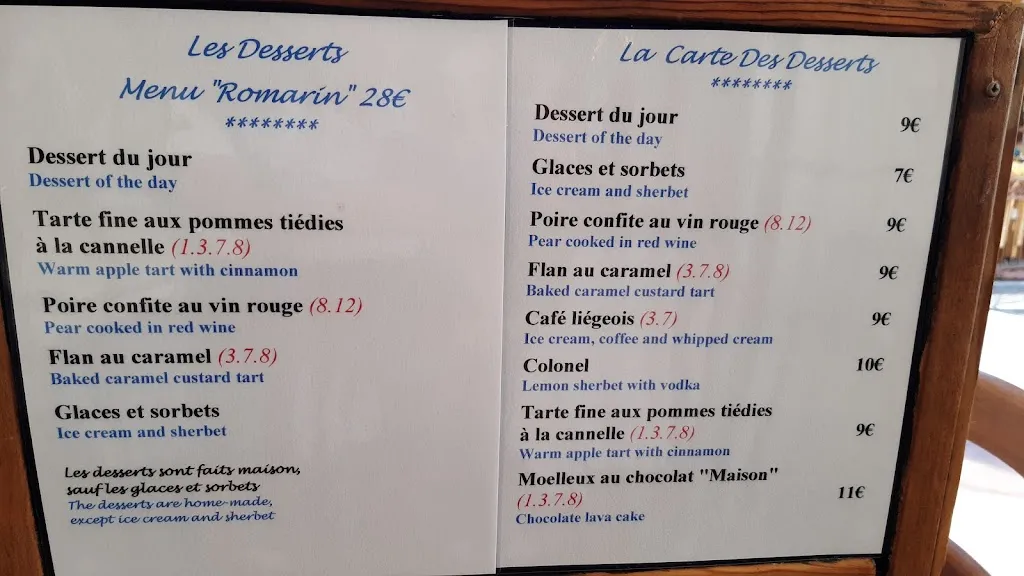 Les Desserts
Menu "Romarin" 28€
********
Dessert du jour
Dessert of the day
Tarte fine aux pommes tiédies
à la cannelle (1.3.7.8)
Warm apple tart with cinnamon
Poire confite au vin rouge (8.12)
Pear cooked in red wine
Flan au caramel (3.7.8)
Baked caramel custard tart
Glaces et sorbets
Ice cream and sherbet
Les desserts sont faits maison,
sauf les glaces et sorbets
The desserts are home-made,
except ice cream and sherbet
La Carte Des Desserts
********
Dessert du jour 9€
Dessert of the day
Glaces et sorbets 7€
Ice cream and sherbet
Poire confite au vin rouge (8.12) 9€
Pear cooked in red wine
Flan au caramel (3.7.8) 9€
Baked caramel custard tart
Café liégeois (3.7) 9€
Ice cream, coffee and whipped cream
Colonel 10€
Lemon sherbet with vodka
Tarte fine aux pommes tiédies
à la cannelle (1.3.7.8) 9€
Warm apple tart with cinnamon
Moelleux au chocolat "Maison"
(1.3.7.8) 11€
Chocolate lava cake